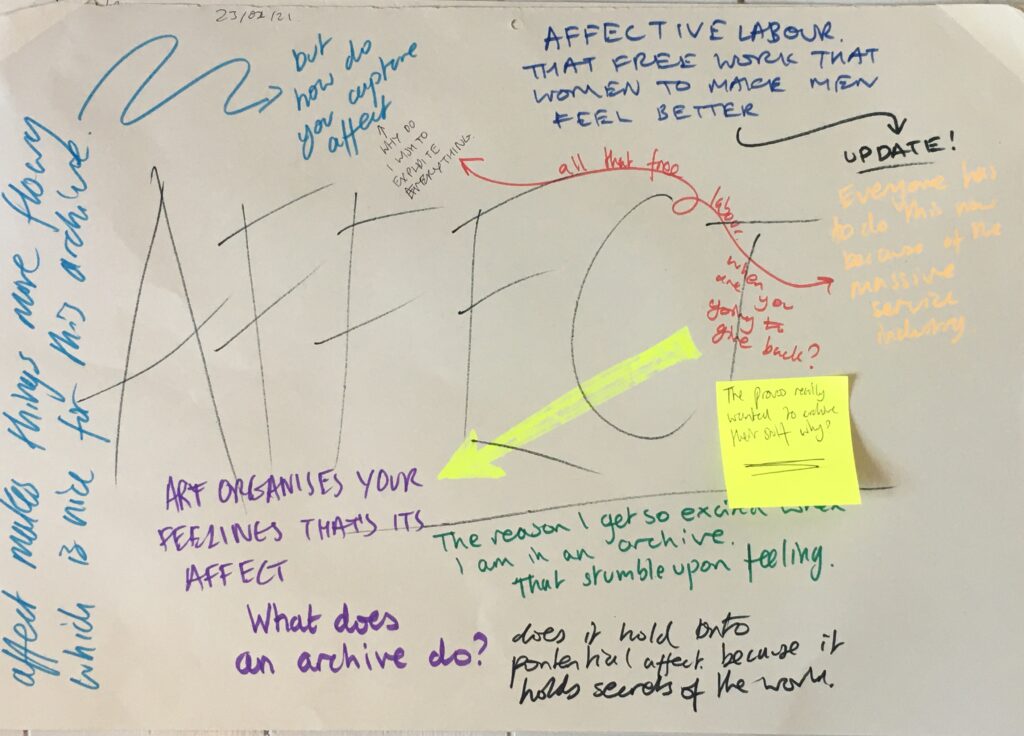 23/02/21
affect makes things more flowy
which is nice for this archive.
but
how do
you capture
affect
WHY DO
I WISH TO
EXPLOITE
EVERYTHING.
AFFECTIVE LABOUR.
THAT FREE WORK THAT
WOMEN TO MAKE MEN
FEEL BETTER
UPDATE!
Everyone has
to do this now
because of the
massive
service
industry
all that free
labour
when
are you
going to
give back?
AFFECT
The provos really
wanted to archive
their stuff why?
ART ORGANISES YOUR
FEELINGS THAT'S ITS
AFFECT
The reason I get so excited when
I am in an archive.
That stumble upon feeling.
What does
an archive do?
does it hold onto
pontential affect because it
holds secrets of the world.